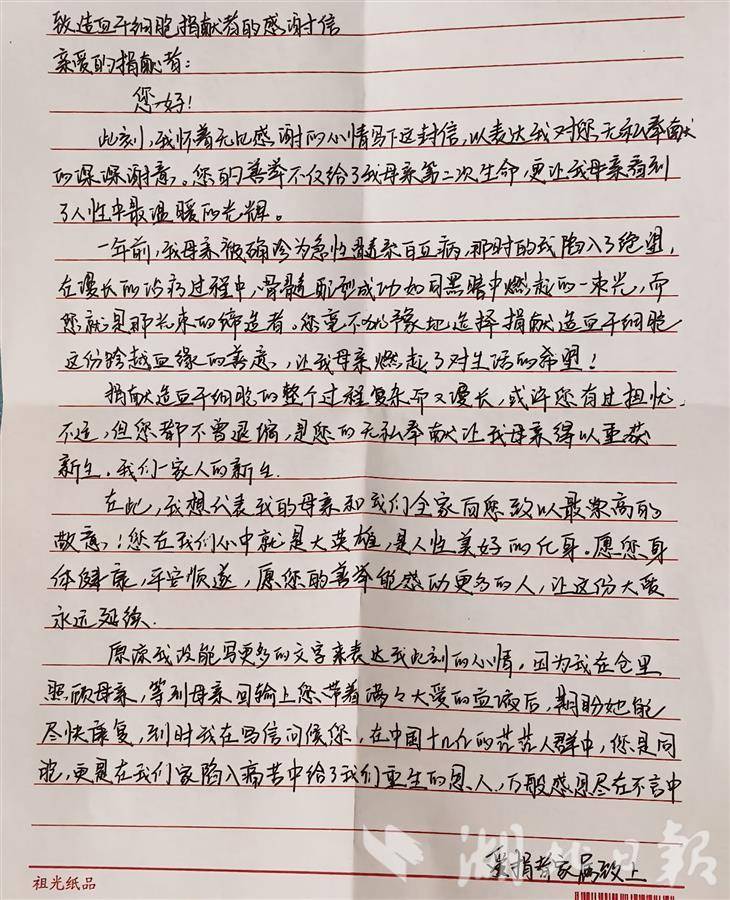 致造血干细胞捐献者的感谢信
亲爱的捐献者:
您好!
此刻,我怀着无比感谢的心情写下这封信,以表达我对您无私奉献
的深深谢意。您的善举不仅给了我母亲第二次生命,更让我母亲看到
了人性中最温暖的光辉。
一年前,我母亲被确诊为急性髓系白血病,那时的我陷入了绝望,
在漫长的治疗过程中,骨髓配型成功如同黑暗中燃起的一束光,而
您就是那光束的缔造者。您毫不犹豫地选择捐献造血干细胞
这份跨越血缘的善意,让我母亲燃起了对生活的希望!
捐献造血干细胞的整个过程复杂而又漫长,或许您有过担忧、
不适,但您都不曾退缩,是您的无私奉献让我母亲得以重获
新生,我们一家人的新生.
在此,我想代表我的母亲和我们全家向您致以最崇高的
敬意!您在我们心中就是大英雄,是人性美好的化身。愿您身
体健康,平安顺遂,愿您的善举能感动更多的人,让这份大爱
永远延续.
原谅我没能写更多的文字来表达我此刻的心情,因为我在仓里
照顾母亲,等到母亲回输上您带着满々大爱的血液后,期盼她能
尽快康复,到时我在写信问候您,在中国十几亿的茫茫人群中,您是同
胞,更是在我们家陷入病苦中给了我们重生的恩人,万般感恩尽在不言中
受捐者家属致上
祖光纸品
湖北日报